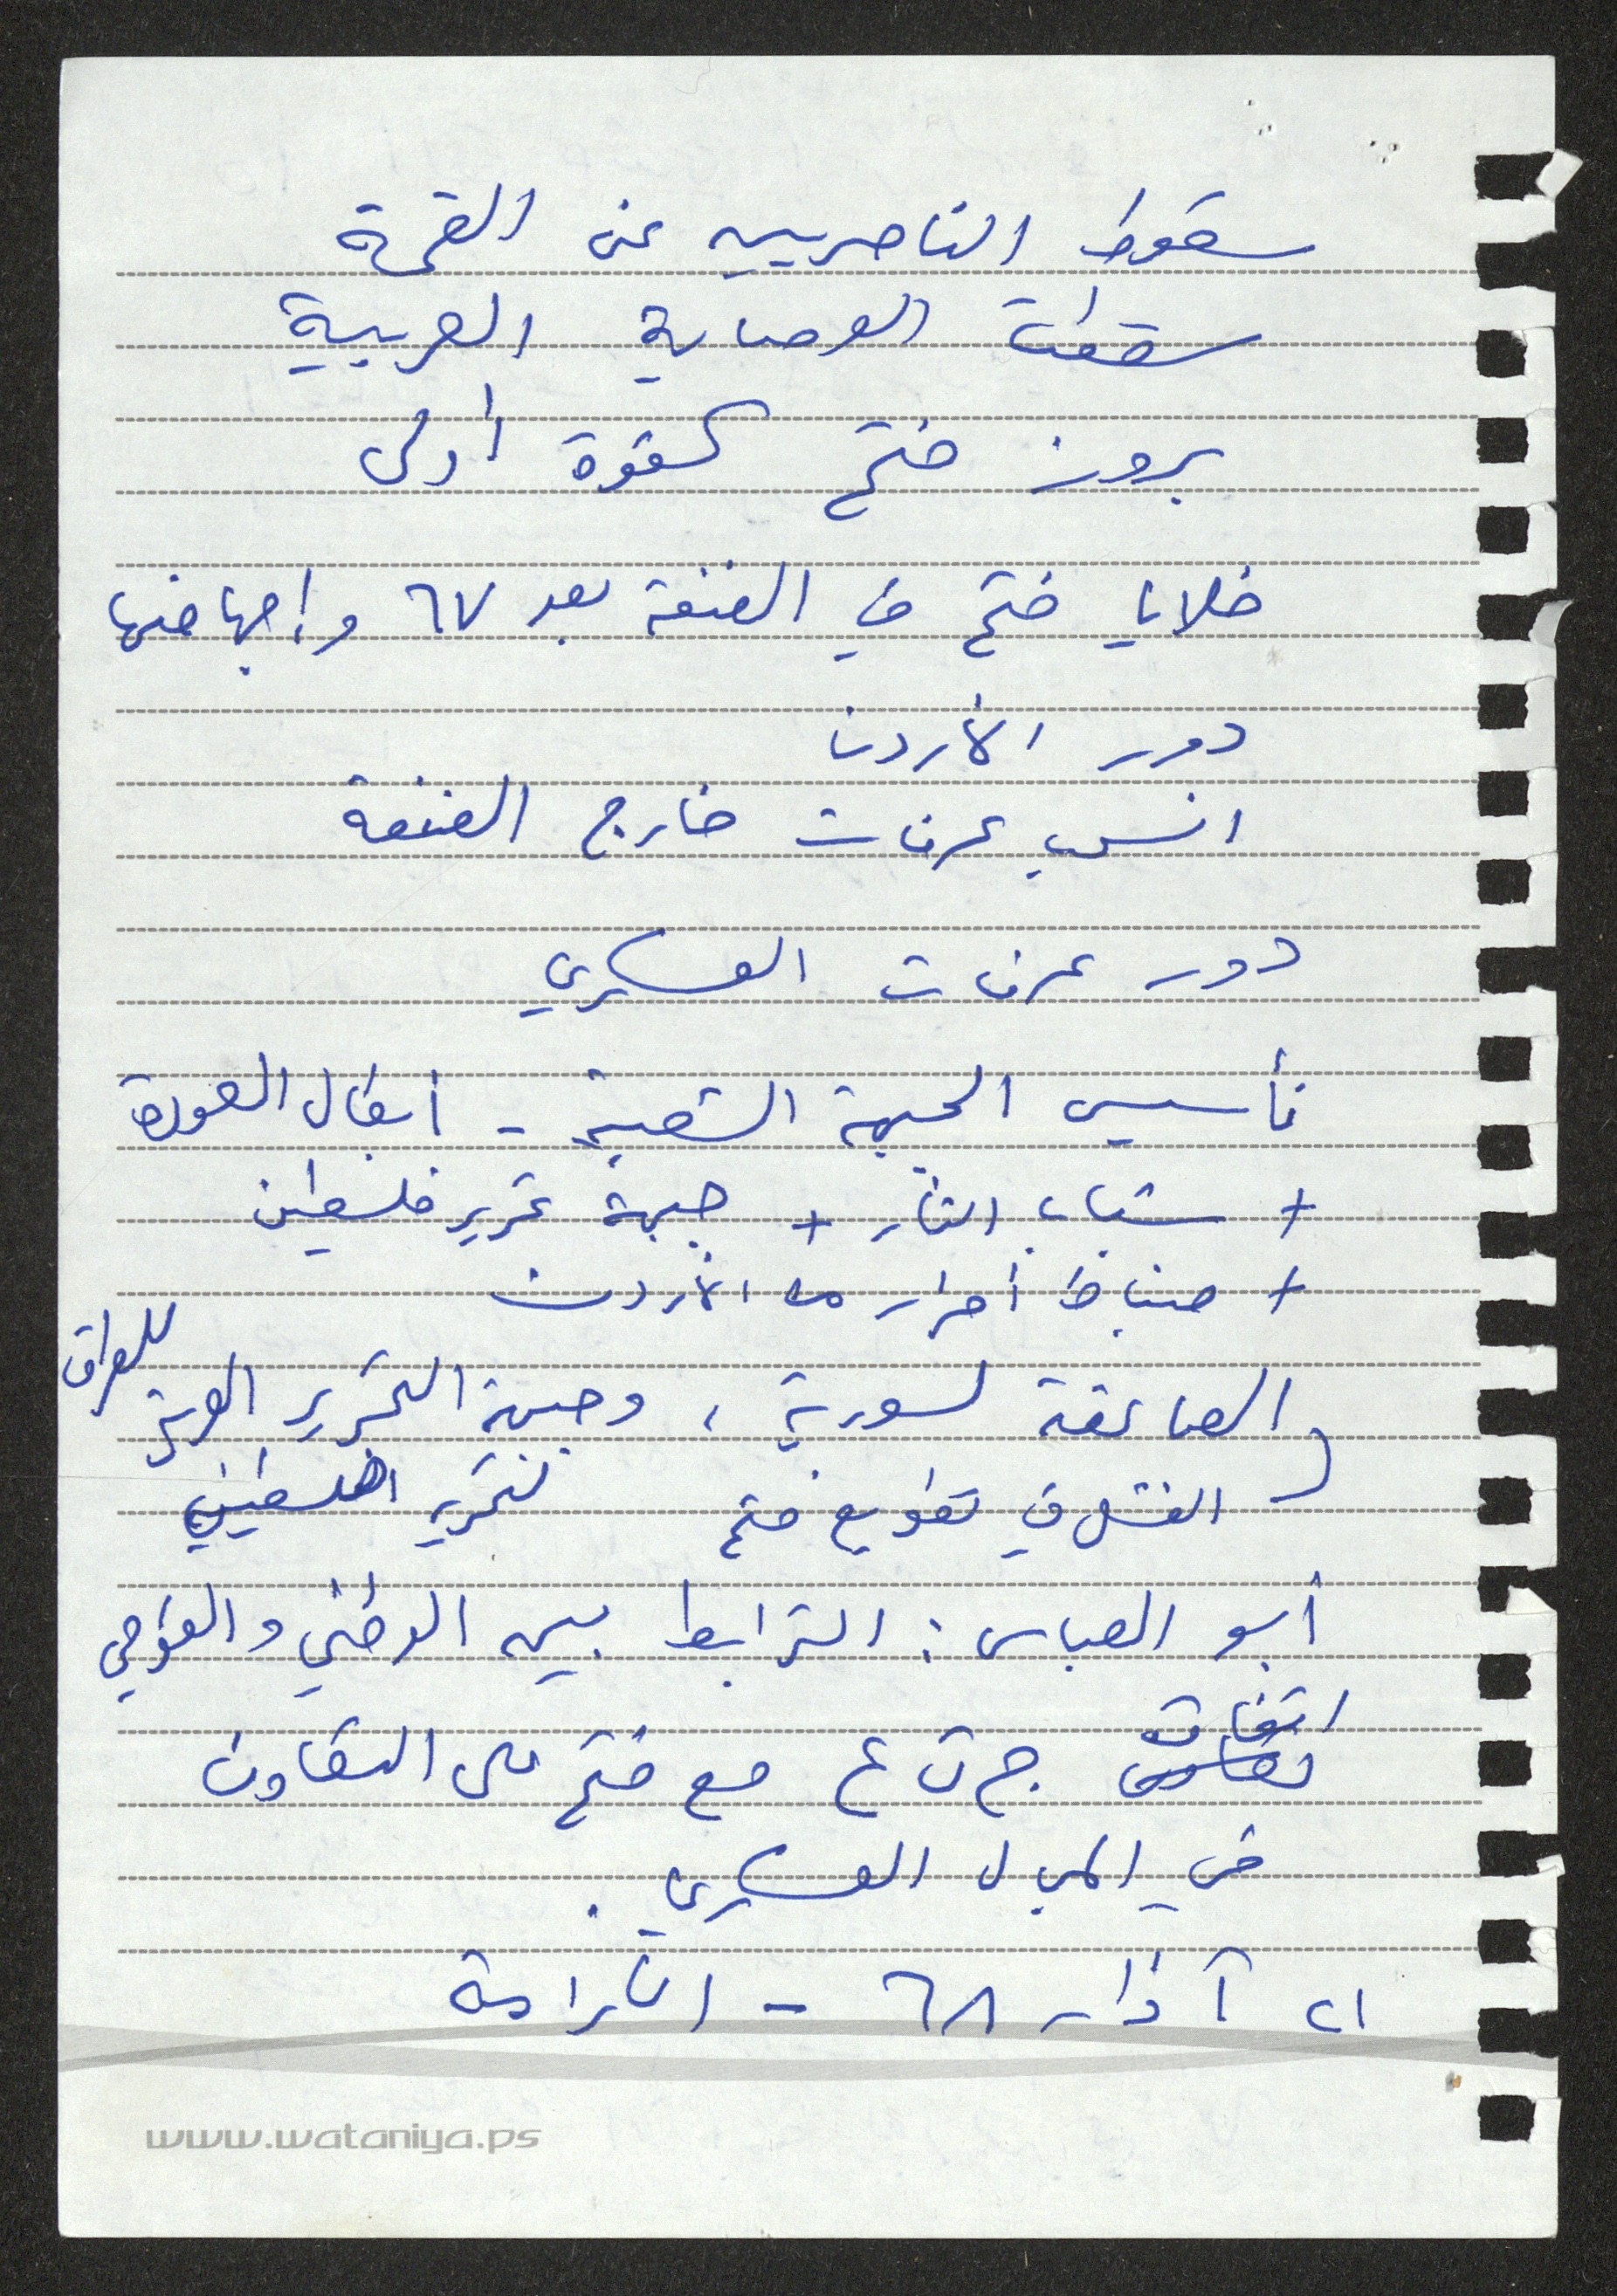 سقوط الناصريين عن القمة
سقطت الوصاية العربية
بروز فتح كقوة أولى
خلايا فتح في الضفة بعد ٦٧ وإجهاضها
دور الأردن
انسحب عرفات خارج الضفة
دور عرفات العسكري
تأسيس الجبهة الشعبية - أبطال العودة
+ شباب الثأر + جبهة تحرير فلسطين
+ ضباط أحرار من الأردن
للعراق
الصاعقة لسورية ، وجبهة التحرير العربية
الفشل في تطويع فتح لتحرير فلسطين
أبو العباس : الترابط بين الوطني والقومي
اتفاق
ج ت ع مع فتح على التعاون
في المجال العسكري .
٢١ آذار ٦٨ - الكرامة
www.wataniya.ps